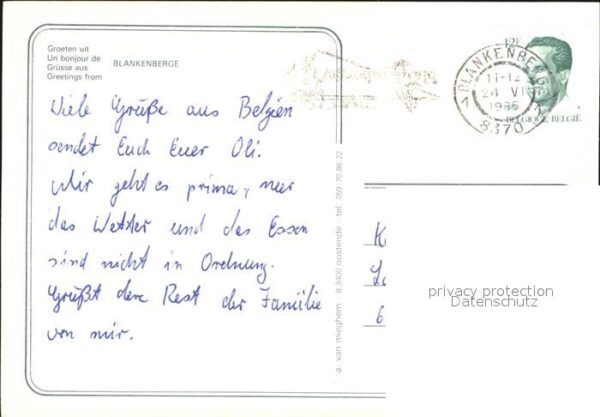 Groeten uit
Un bonjour de
Grüsse aus
Greetings from
BLANKENBERGE
Viele Grüße aus Belgien
sendet Euch Euer Oli.
Mir geht es prima, nur
das Wetter und das Essen
sind nicht in Ordnung.
Grüßt den Rest der Familie
von mir.
a. van mieghem B 8400 oostende tel. 059 70.86.22
12F
BELGIQUE-BELGIË
BLANKENBERGE
11-12
1986
8370
K
6
privacy protection
Datenschutz